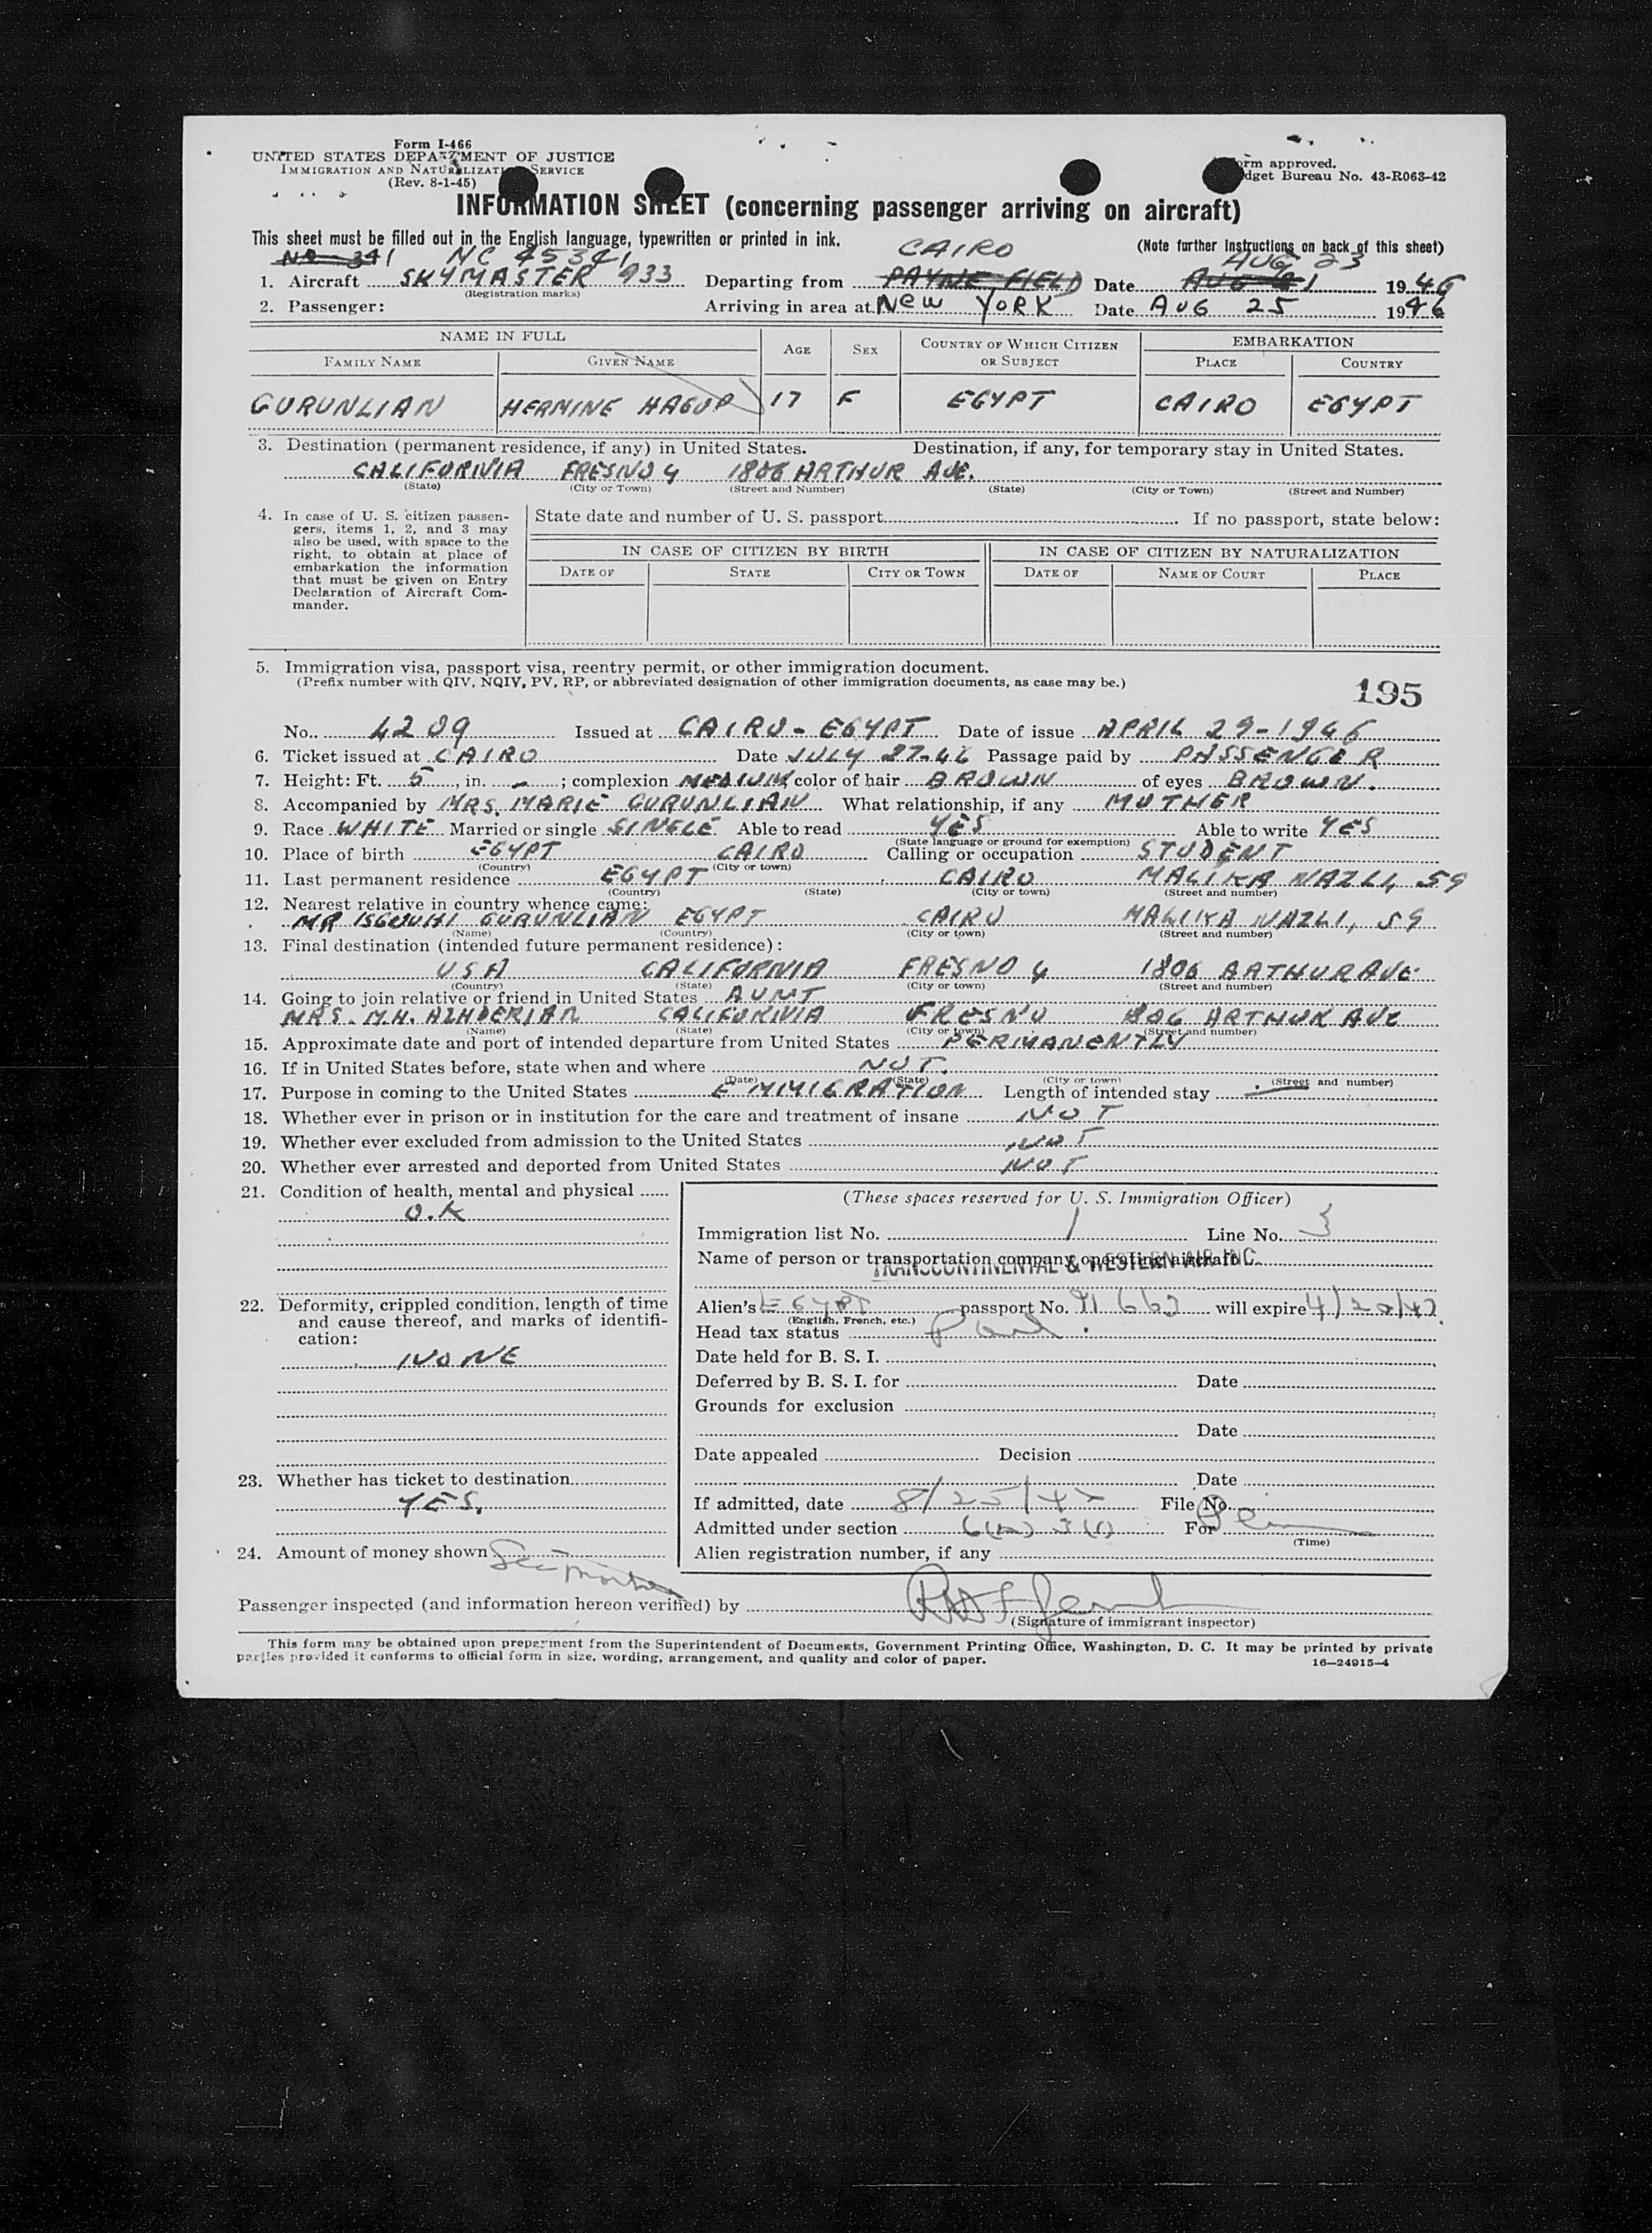 Form I-466
UNITED STATES DEPARTMENT OF JUSTICE
IMMIGRATION AND NATURALIZATION SERVICE
(Rev. 8-1-45)
Form approved.
Budget Bureau No. 43-R063-42
INFORMATION SHEET (concerning passenger arriving on aircraft)
This sheet must be filled out in the English language, typewritten or printed in ink.
(Note further instructions on back of this sheet)
NC 45341 CAIRO AUG 23
1. Aircraft SKYMASTER 933 Departing from PAYNE FIELD Date AUG 1946
(Registration marks)
2. Passenger: Arriving in area at NEW YORK Date AUG 25 1946
NAME IN FULL AGE SEX COUNTRY OF WHICH CITIZEN OR SUBJECT EMBARKATION
FAMILY NAME GIVEN NAME PLACE COUNTRY
GURUNLIAN HERMINE HAGOP 17 F EGYPT CAIRO EGYPT
3. Destination (permanent residence, if any) in United States. Destination, if any, for temporary stay in United States.
CALIFORNIA FRESNO 4 1806 ARTHUR AVE.
(State) (City or Town) (Street and Number) (State) (City or Town) (Street and Number)
4. In case of U. S. citizen passengers, items 1, 2, and 3 may also be used, with space to the right, to obtain at place of embarkation the information that must be given on Entry Declaration of Aircraft Commander.
State date and number of U. S. passport If no passport, state below:
IN CASE OF CITIZEN BY BIRTH IN CASE OF CITIZEN BY NATURALIZATION
DATE OF STATE CITY OR TOWN DATE OF NAME OF COURT PLACE
5. Immigration visa, passport visa, reentry permit, or other immigration document.
(Prefix number with QIV, NQIV, PV, RP, or abbreviated designation of other immigration documents, as case may be.)
195
No. 4209 Issued at CAIRO - EGYPT Date of issue APRIL 29-1946
6. Ticket issued at CAIRO Date JULY 27-46 Passage paid by PASSENGER
7. Height: Ft. 5, in. -; complexion MEDIUM color of hair BROWN of eyes BROWN.
8. Accompanied by MRS. MARIE GURUNLIAN What relationship, if any MOTHER
9. Race WHITE Married or single SINGLE Able to read YES Able to write YES
(State language or ground for exemption)
10. Place of birth EGYPT CAIRO Calling or occupation STUDENT
(Country) (City or town)
11. Last permanent residence EGYPT CAIRO MALIKA NAZLI, 59
(Country) (State) (City or town) (Street and number)
12. Nearest relative in country whence came:
MR ISGOUHI GURUNLIAN EGYPT CAIRO MALIKA NAZLI, 59
(Name) (Country) (City or town) (Street and number)
13. Final destination (intended future permanent residence):
USA CALIFORNIA FRESNO 4 1806 ARTHUR AVE.
(Country) (State) (City or town) (Street and number)
14. Going to join relative or friend in United States AUNT
MRS. M.H. CALIFORNIA FRESNO 1806 ARTHUR AVE
(Name) (State) (City or town) (Street and number)
15. Approximate date and port of intended departure from United States PERMANENTLY
16. If in United States before, state when and where NOT.
(Date) (State) (City or town) (Street and number)
17. Purpose in coming to the United States EMMIGRATION Length of intended stay
18. Whether ever in prison or in institution for the care and treatment of insane NOT
19. Whether ever excluded from admission to the United States NOT
20. Whether ever arrested and deported from United States NOT
21. Condition of health, mental and physical
O.K
22. Deformity, crippled condition, length of time and cause thereof, and marks of identification:
NONE
23. Whether has ticket to destination
YES.
24. Amount of money shown See mother
(These spaces reserved for U. S. Immigration Officer)
Immigration list No. 1 Line No. 3
Name of person or transportation company operating aircraft
TRANSCONTINENTAL & WESTERN AIR INC.
Alien's EGYPT passport No. will expire
(English, French, etc.)
Head tax status Paid.
Date held for B. S. I.
Deferred by B. S. I. for Date
Grounds for exclusion
Date
Date appealed Decision
Date
If admitted, date 8/25/ File No.
Admitted under section For
(Time)
Alien registration number, if any
Passenger inspected (and information hereon verified) by
(Signature of immigrant inspector)
This form may be obtained upon prepayment from the Superintendent of Documents, Government Printing Office, Washington, D. C. It may be printed by private
parties provided it conforms to official form in size, wording, arrangement, and quality and color of paper.
16—24915-4